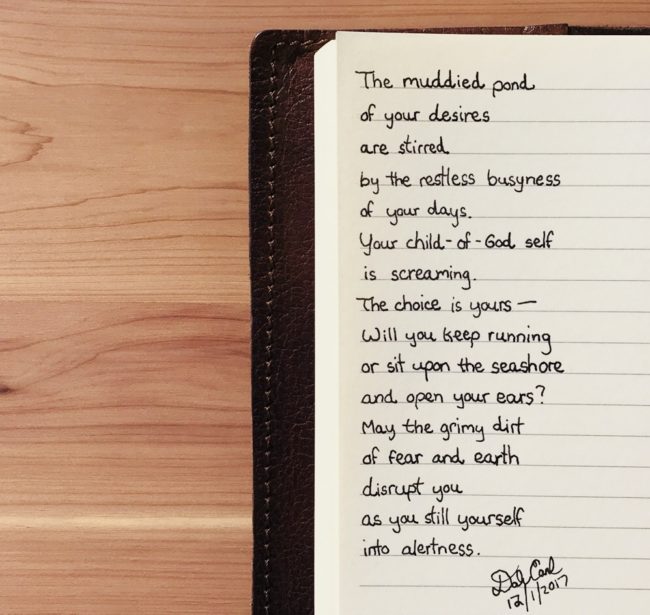 The muddied pond
of your desires
are stirred
by the restless busyness
of your days.
Your child-of-God self
is screaming.
The choice is yours —
Will you keep running
or sit upon the seashore
and open your ears?
May the grimy dirt
of fear and earth
disrupt you
as you still yourself
into alertness.
12/1/2017